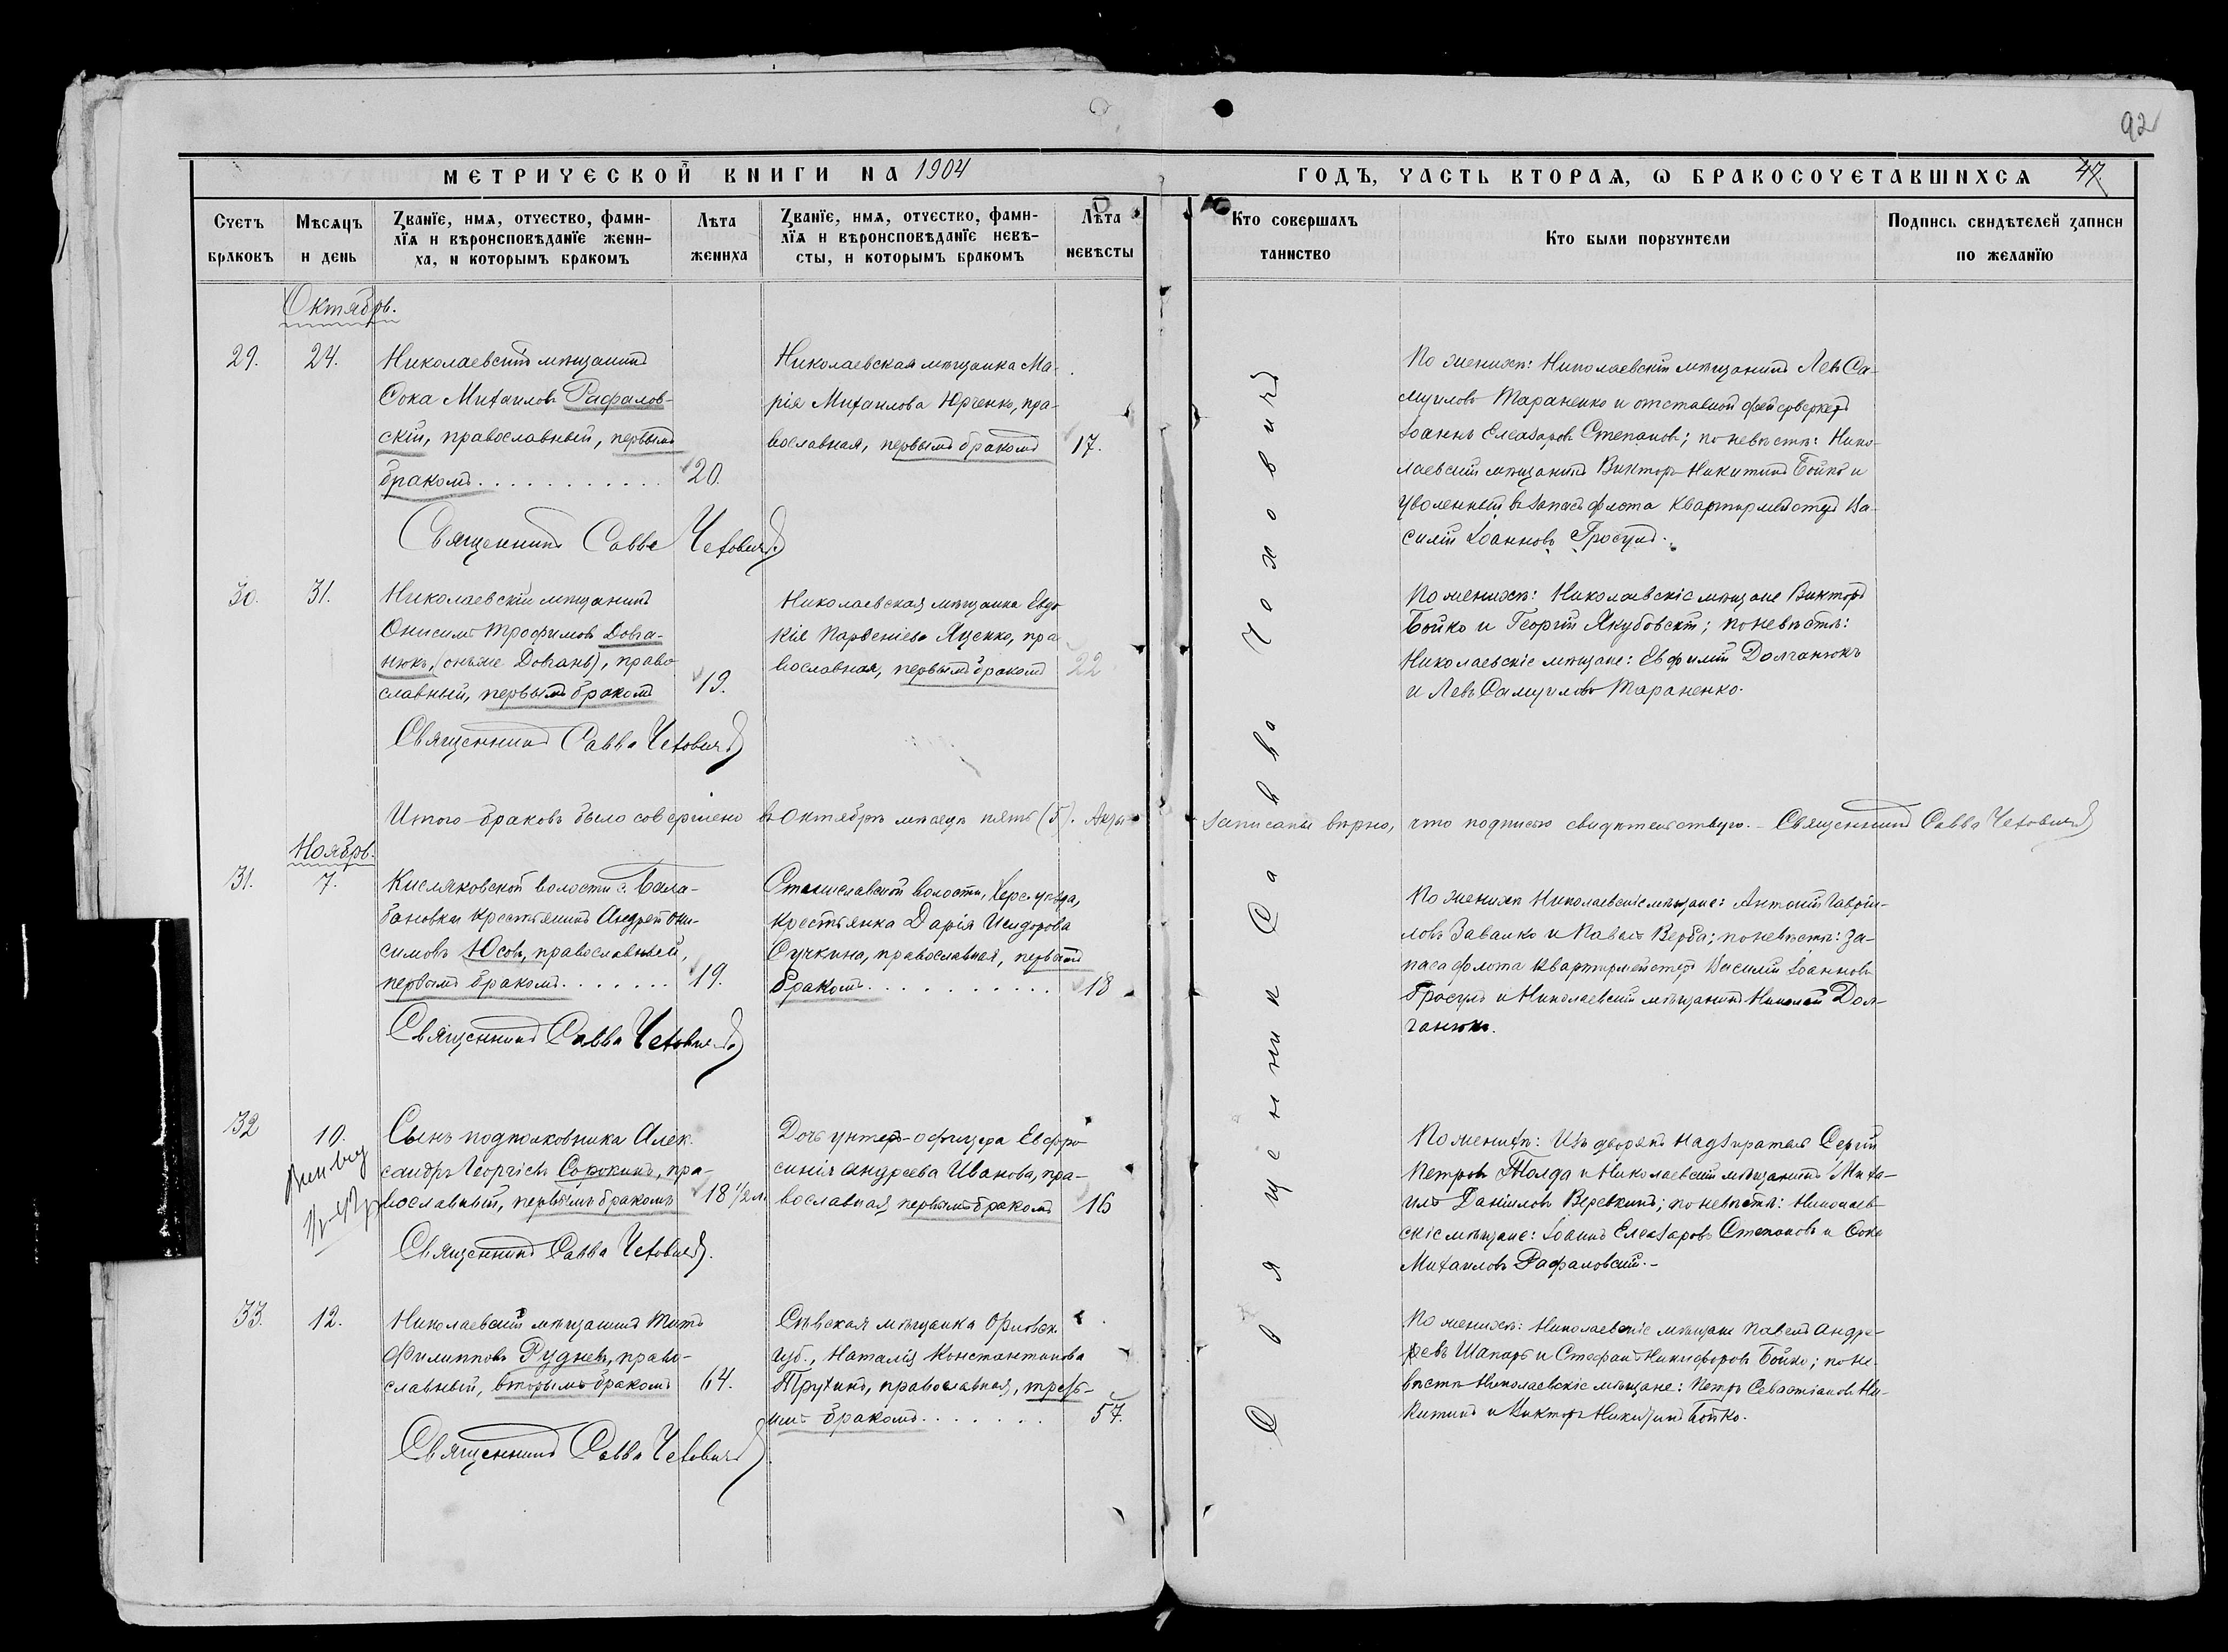 92
МЕТРИЧЕСКОЙ КНИГИ НА 1904
ГОДЪ, ЧАСТЬ ВТОРАЯ, Ѡ БРАКОСОЧЕТАВШИХСЯ 47.
Счетъ браковъ
Мѣсяцъ и день
Званіе, имя, отчество, фами-
лія и вѣроисповѣданіе жени-
ха, и которымъ бракомъ
Лѣта жениха
Званіе, имя, отчество, фами-
лія и вѣроисповѣданіе невѣ-
сты, и которымъ бракомъ
Лѣта невѣсты
Кто совершалъ таинство
Кто были поручители
Подпись свидѣтелей записи по желанію
Октябрь.
29.
24.
Николаевскій мѣщанинъ
Сока Михаиловъ Рафалов-
скій, православный, первымъ
бракомъ
20.
Николаевская мѣщанка Ма-
рія Михаилова Юрченко, пра-
вославная, первымъ бракомъ
17.
По женихѣ: Николаевскій мѣщанинъ Левъ Са-
муиловъ Тараненко и отставной фейерверкеръ
Іоаннъ Елеазаровъ Степановъ; по невѣстѣ: Нико-
лаевскій мѣщанинъ Викторъ Никитинъ Бойко и
уволенный въ запасъ флота квартирмейстеръ Ва-
силій Іоанновъ Гросулъ.
Священникъ Савва Чеховичъ
30.
31.
Николаевскій мѣщанинъ
Онисимъ Трофимовъ Довга-
нюкъ, (онъже Довгань), право
славный, первымъ бракомъ
19.
Николаевская мѣщанка Евдо
кія Парѳеніева Яценко, пра
вославная, первымъ бракомъ
22
По женихѣ: Николаевскіе мѣщане Викторъ
Бойко и Георгій Якубовскій; по невѣстѣ:
Николаевскіе мѣщане: Евфимій Долганюкъ
и Левъ Самуиловъ Тараненко.
Священникъ Савва Чеховичъ
Итого браковъ было совершено въ Октябрѣ мѣсяцѣ пять (5). Акты записаны вѣрно, что подписью свидѣтельствую. – Священникъ Савва Чеховичъ
Ноябрь.
31.
7.
Кисляковской волости с. Бала-
бановки крестьянинъ Андрей Они-
симовъ Юсовъ, православный,
первымъ бракомъ
19.
Станиславской волости, Херс. уѣзда,
крестьянка Дарія Исидорова
Сучкина, православная, первымъ
бракомъ
18
По женихѣ Николаевскіе мѣщане: Антоній Гаврiи-
ловъ Завалко и Павелъ Верба; по невѣстѣ: за-
паса флота квартирмейстеръ Василій Іоанновъ
Гросулъ и Николаевскій мѣщанинъ Николай Дол-
ганюкъ.
Священникъ Савва Чеховичъ
32
10.
Сынъ подполковника Алек-
сандръ Георгіевъ Сорокинъ, пра-
вославный, первымъ бракомъ
18 1/2 л.
Дочь унтеръ-офицера Евфро
синія Андреева Иванова, пра-
вославная, первымъ бракомъ
16
По женихѣ: Изъ дворянъ надзиратель Сергій
Петровъ Толда и Николаевскій мѣщанинъ Миха-
илъ Даніиловъ Веревкинъ; по невѣстѣ: Николаев-
скіе мѣщане: Іоаннъ Елеазаровъ Степановъ и Сока
Михаиловъ Рафаловскій. –
Священникъ Савва Чеховичъ.
33.
12.
Николаевскій мѣщанинъ Титъ
Филипповъ Рудневъ, право-
славный, вторымъ бракомъ
64.
Сѣвская мѣщанка Орловск.
губ., Наталія Константинова
Трухина, православная, треть-
имъ бракомъ
57.
По женихѣ: Николаевскіе мѣщане Павелъ Андре-
евъ Шапарь и Стефанъ Никифоровъ Бойко; по не-
вѣстѣ Николаевскіе мѣщане: Петръ Севастіановъ Ни-
китинъ и Викторъ Никитинъ Бойко.
Священникъ Савва Чеховичъ
Священник Савва Чеховичъ